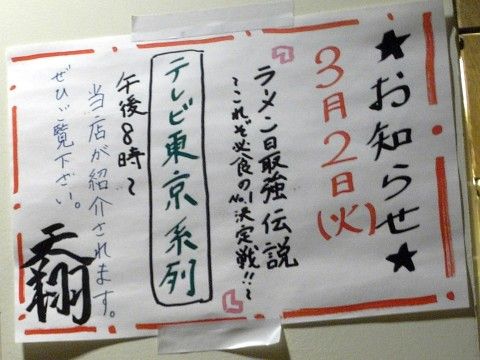 ★お知らせ★
3月2日(火)
「ラメン日最強伝説
～これぞ必食のNo.1決定戦!!～」
テレビ東京系列
午後8時～
当店が紹介されます。
ぜひご覧下さい。
天翔